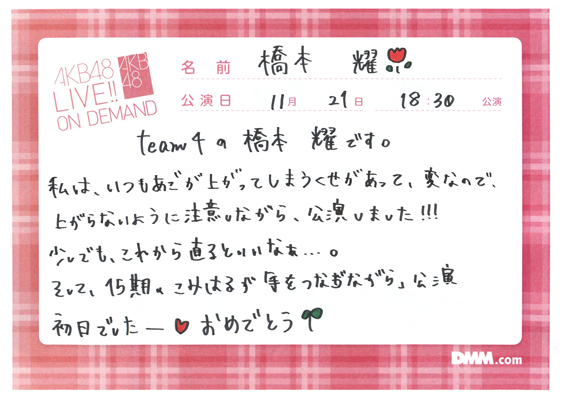 AKB48
LIVE!!
ON DEMAND
AKB
48
名 前 橋本 耀
公演日 11月 21日 18:30 公演
team4の 橋本 耀です。
私は、いつもあごが上がってしまうくせがあって、変なので、
上がらないように注意しながら、公演しました!!!
少しでも、これから直るといいなぁ…。
そして、15期のこみはるが「手をつなぎながら」公演
初日でしたー おめでとう
DMM.com